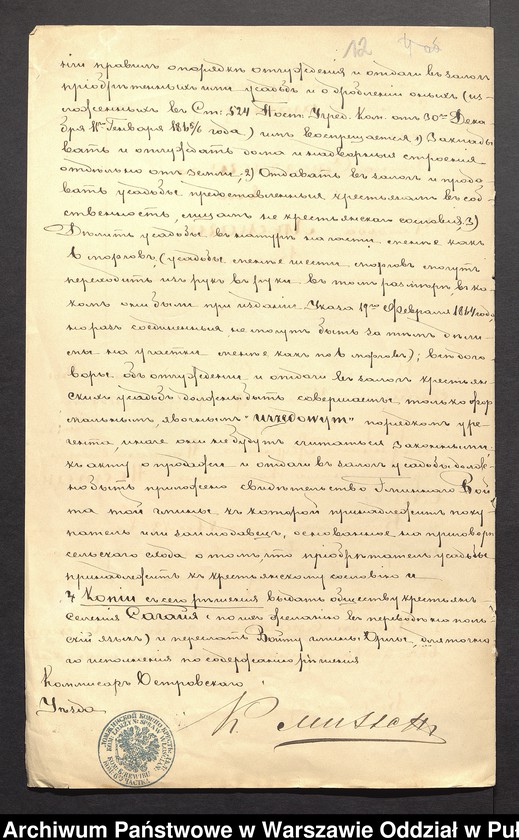 12
нію правилъ о порядкѣ отчужденія и отдачи въ залогъ
пріобрѣтенныхъ ими усадьбъ и о дробленіи оныхъ (из-
ложенныхъ въ Ст: 524 Пост: Учред: Ком: отъ 30го Дека-
бря 11го Генваря 1865/6 года) имъ воспрещается 1) Заклады
вать и отчуждать дома и надворныя строенія
отдѣльно отъ земли, 2) Отдавать въ залогъ и прода
вать усадьбы, предоставленныя крестьянамъ въ соб
ственность, лицамъ не крестьянскаго сословія, 3)
Дѣлить усадьбы въ натурѣ на части менѣе какъ
6 морговъ, (усадьбы менѣе шести морговъ могутъ
переходить изъ рукъ въ руки въ томъ размѣрѣ, въ ка-
комъ они были при изданіи Указа 19го Февраля 1864 года,
но разъ соединенныя не могутъ быть за тѣмъ дѣли
мы на участки менѣе какъ по 6 морговъ); всѣ дого
воры объ отчужденіи и отдачи въ залогъ крестьян
скихъ усадьбъ должны быть совершаемы только фор
мальнымъ, явочнымъ "urzędowym" порядкомъ у ре-
гента, иначе они не будутъ считаться законными,
къ акту о продажѣ и отдачи въ залогъ усадьбы долж-
но быть приложено свидѣтельство Гминнаго Вой
та той гмины, къ которой принадлежитъ поку
патель или заимодавецъ, основанное на приговорѣ
сельскаго схода о томъ, что пріобрѣтатель усадьбы
принадлежитъ къ крестьянскому сословію и
4 Копіи съ сего рѣшенія выдать обществу крестьянъ
селенія (по ихъ желанію въ переводѣ на поль
скій языкъ) и переслать Войту гмины для точна
го исполненія по содержанію рѣшенія
Комисаръ Островскаго
Уѣзда
Archiwum Państwowe w Warszawie Oddział w Puł